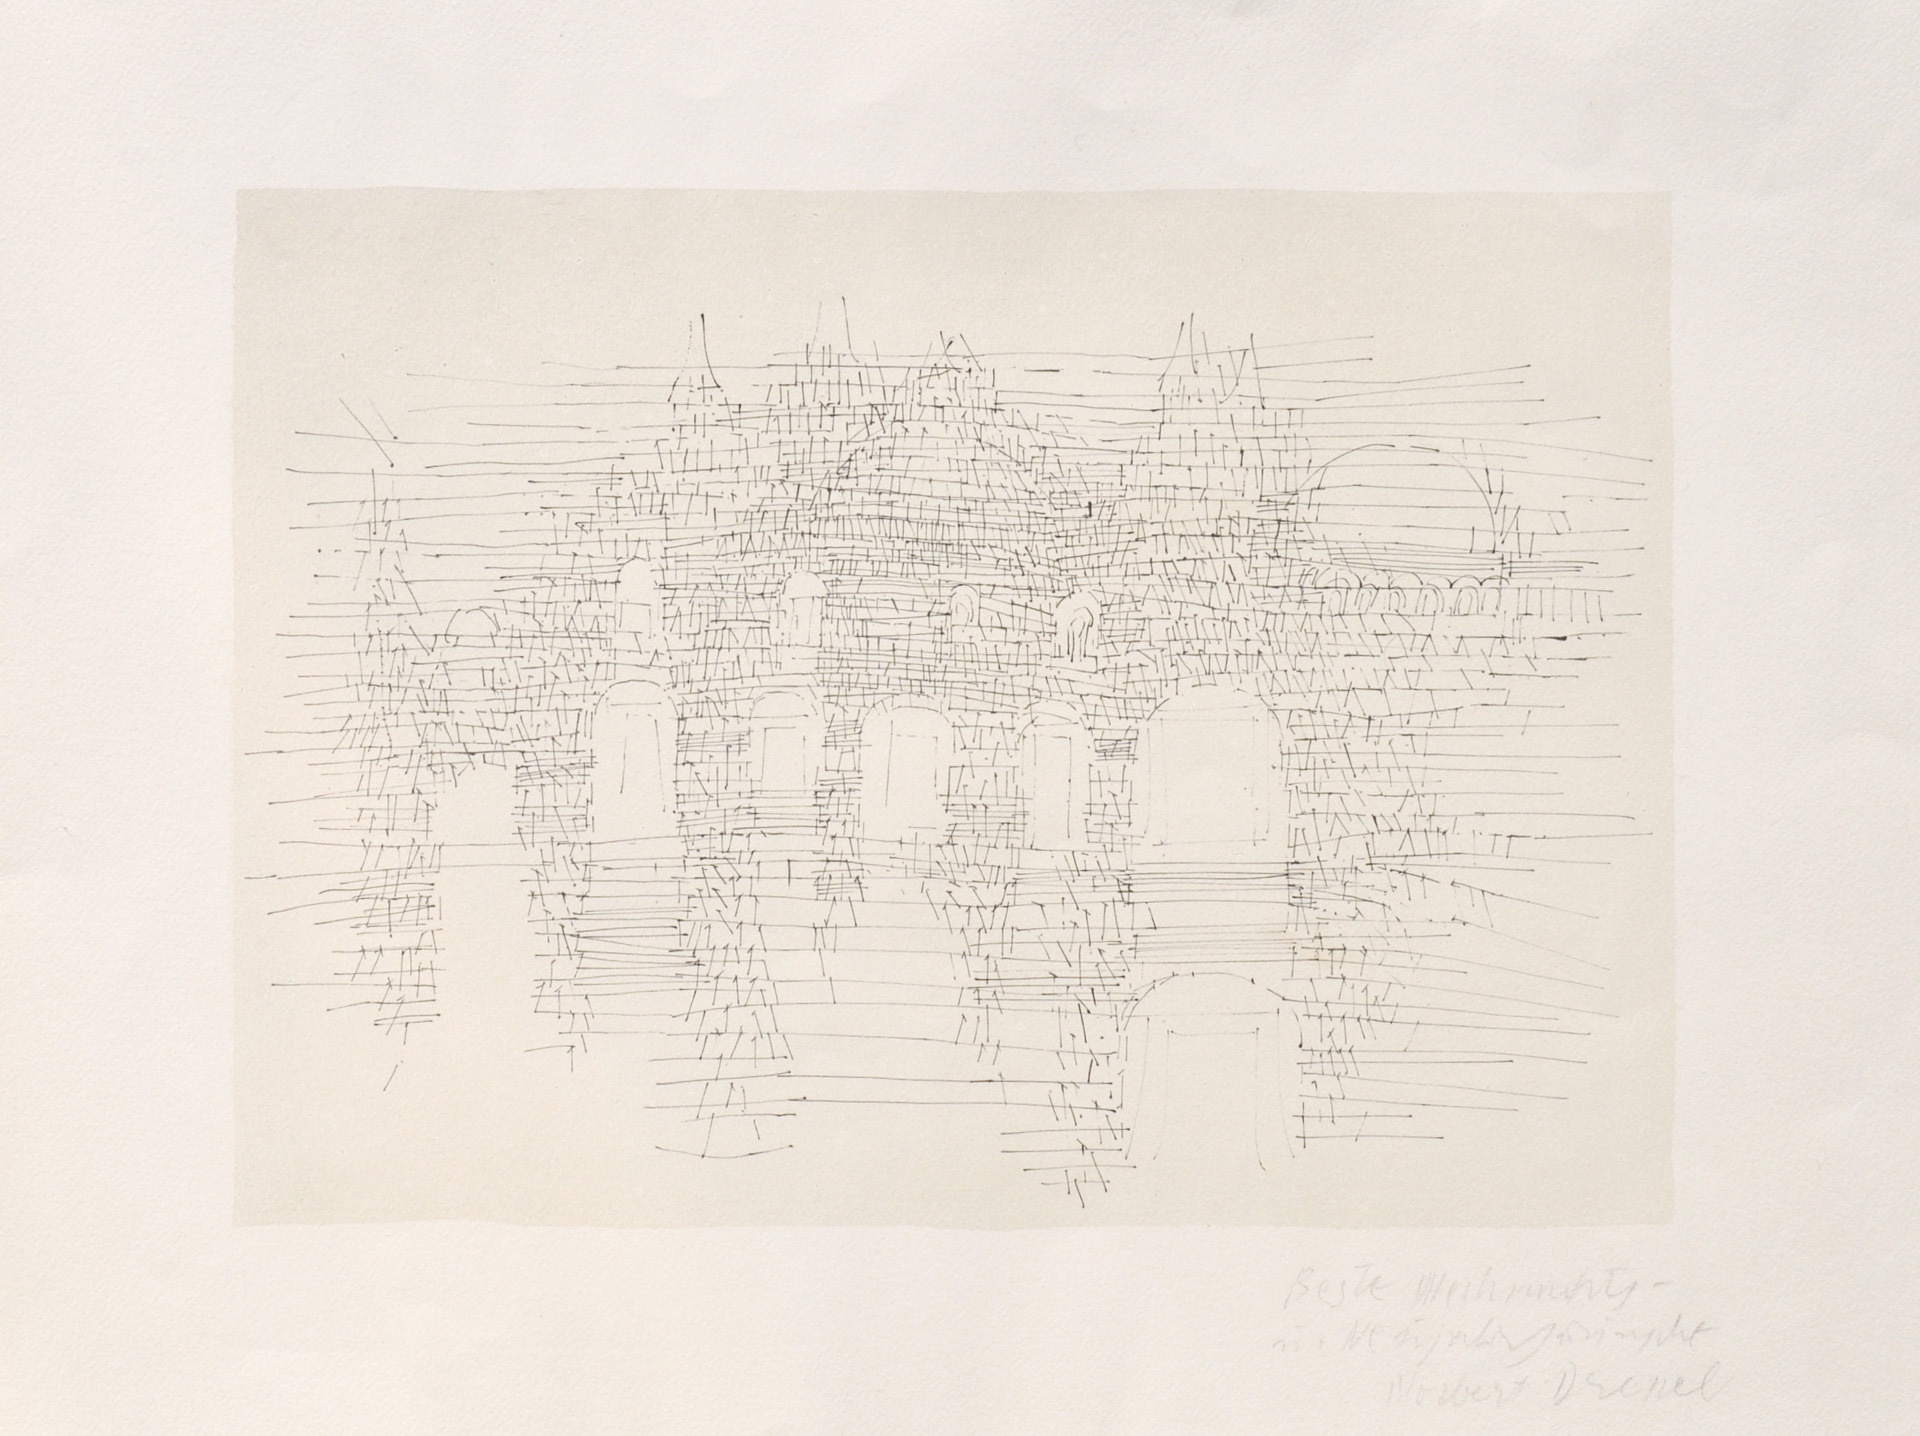 Beste Weihnachts-
u. Neujahrswünsche
Norbert Drexel